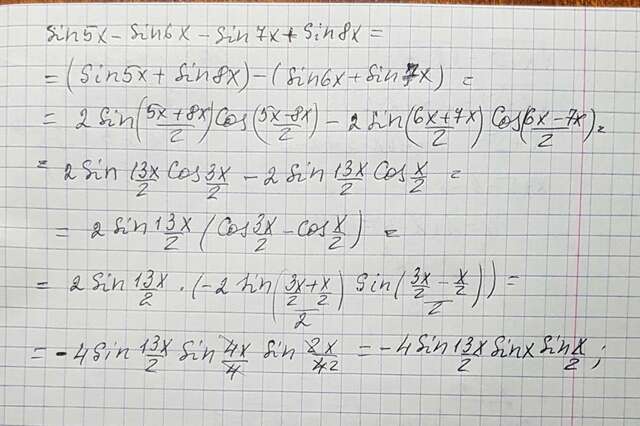 Sin5x - Sin6x - Sin7x + Sin8x =
= (Sin5x + Sin8x) - (Sin6x + Sin7x) =
= 2 Sin(5x+8x/2) Cos(5x-8x/2) - 2 Sin(6x+7x/2) Cos(6x-7x/2) =
= 2 Sin 13x/2 Cos 3x/2 - 2 Sin 13x/2 Cos x/2 =
= 2 Sin 13x/2 (Cos 3x/2 - Cos x/2) =
= 2 Sin 13x/2 · (-2 Sin(3x/2 + x/2 / 2) Sin(3x/2 - x/2 / 2)) =
= -4 Sin 13x/2 Sin 4x/4 Sin 2x/42 = -4 Sin 13x/2 Sinx Sin x/2 ;